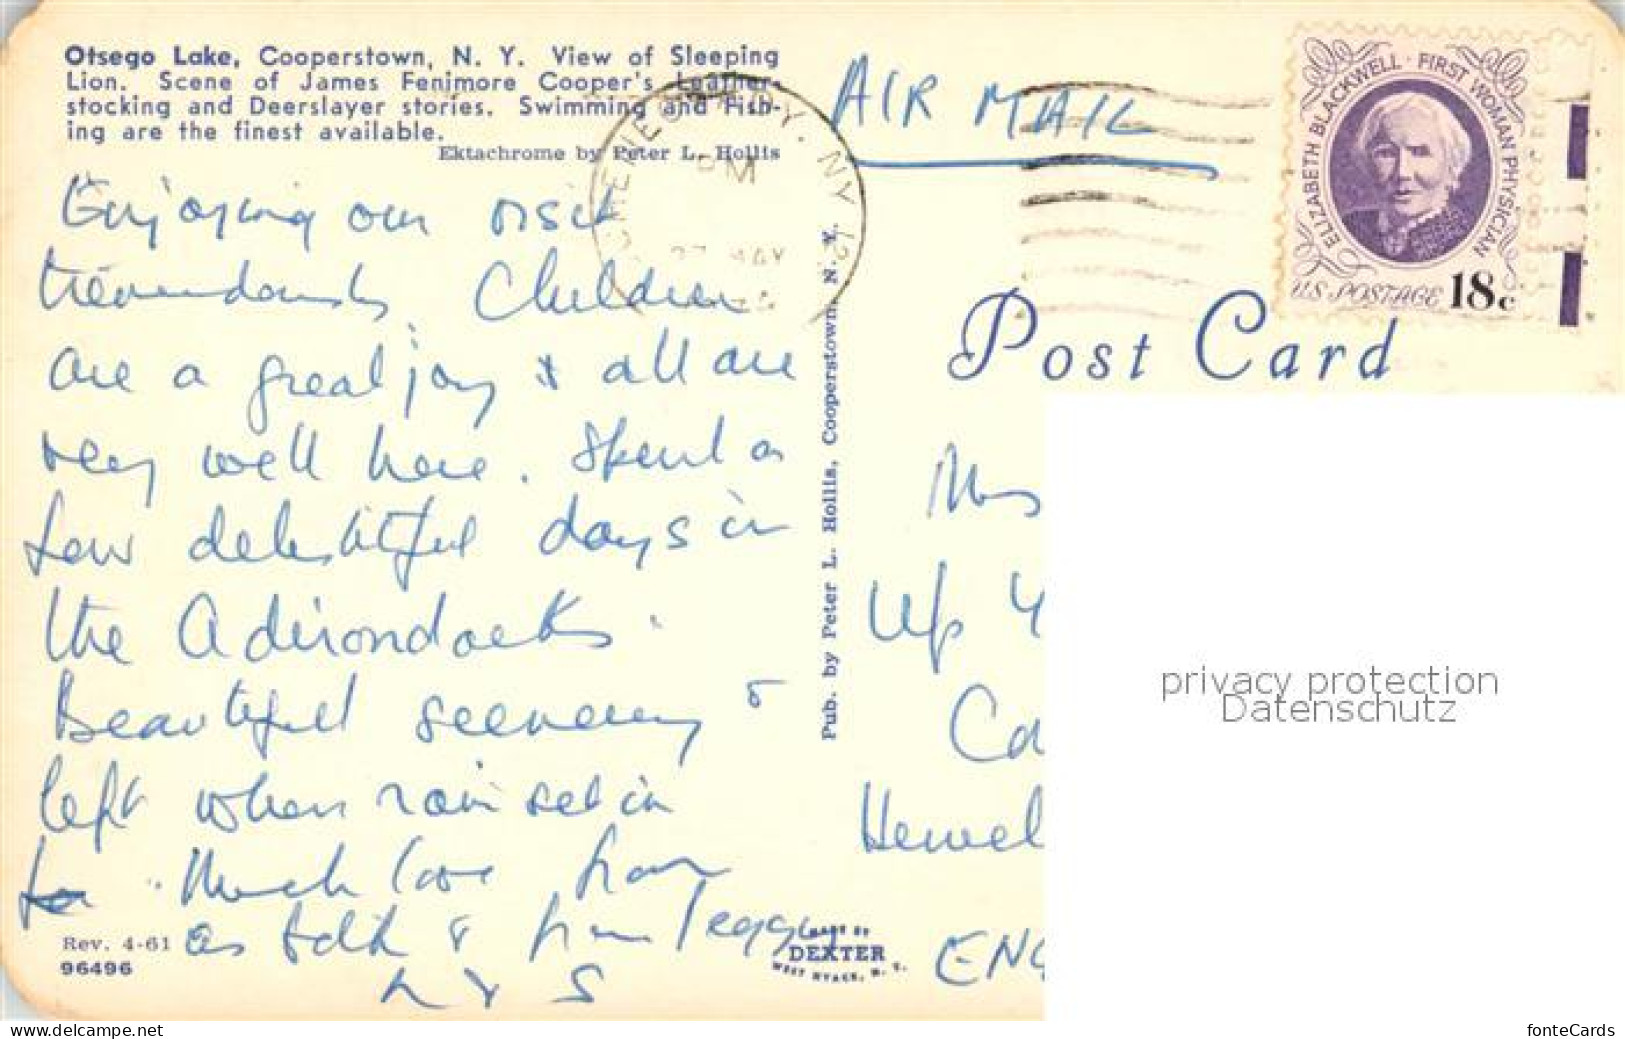 Otsego Lake, Cooperstown, N. Y. View of Sleeping
Lion. Scene of James Fenimore Cooper's Leather-
stocking and Deerslayer stories. Swimming and Fish-
ing are the finest available.
Ektachrome by Peter L. Hollis
Enjoying our visit
tremendously Children
are a great joy & all are
very well here. Spent a
few delightful days in
the Adirondacks.
Beautiful scenery &
left when rain set in
Much love from
as talk & from Peggy
L & S
Rev. 4-61
96496
Pub. by Peter L. Hollis, Cooperstown, N. Y.
MADE BY
DEXTER
WEST NYACK, N. Y.
AIR MAIL
SCHENECTADY, NY 12
PM
27 MAY
ELIZABETH BLACKWELL · FIRST WOMAN PHYSICIAN
U.S. POSTAGE 18c
Post Card
Mrs
Up 4
Ca
Hemel
ENG
privacy protection
Datenschutz
www.delcampe.net
fonteCards